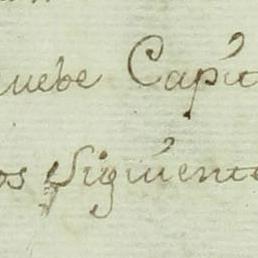 uebe Capit
os Siguient